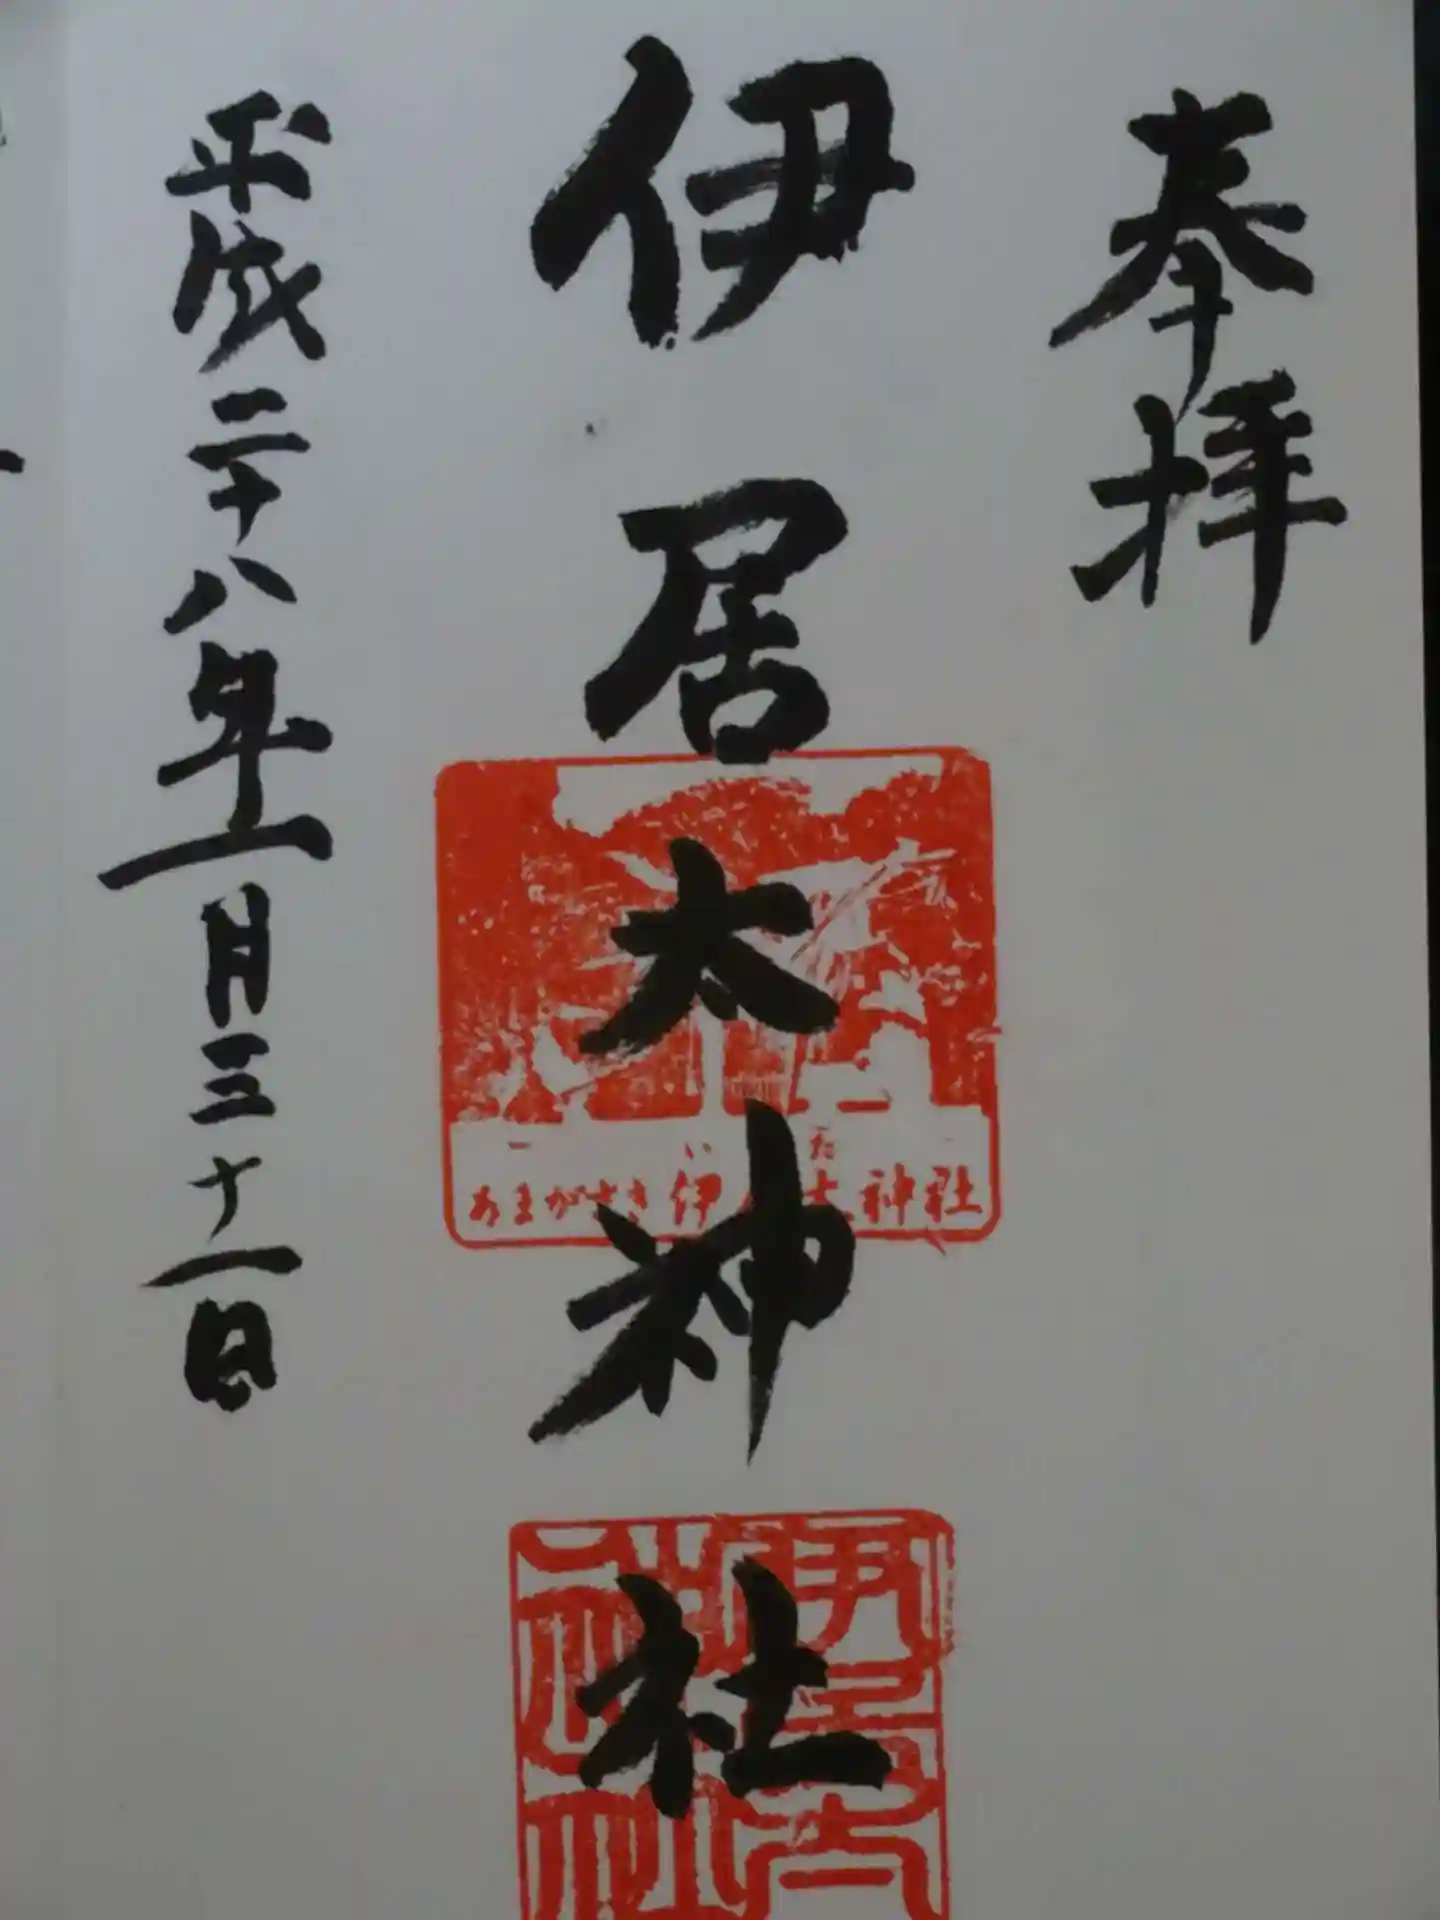 奉拝
伊居太神社
あまがさき伊居太神社
平成二十八年一月三十一日